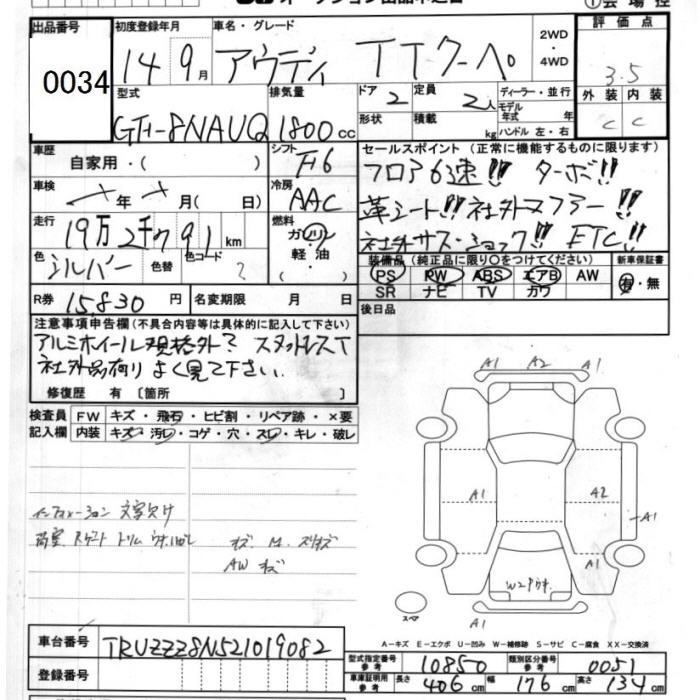 オークション出品申込書
①会場控
出品番号 0034
初度登録年月 14年 9月
車名・グレード アウディ TTクーペ
2WD・4WD
評価点 3.5
外装 C 内装 C
型式 GH-8NAUQ
排気量 1800cc
ドア 2 形状
定員 積載 kg
ディーラー・並行
モデル年式 年式
ハンドル 左・右
車歴 自家用・( )
シフト F6
セールスポイント (正常に機能するものに限ります)
フロア6速!! ターボ!!
革シート!! 社外マフラー!!
社外サス・ショック!! ETC!!
車検 年 月( 日)
冷房 AAC
走行 19万2千 91 km
燃料 ガソリン・軽油 ( )
色 シルバー 色替 色コード ?
装備品 (純正品に限り○をつけてください)
PS PW ABS エアB AW
SR ナビ TV カワ
新車保証書 有・無
R券 15,830 円 名変期限 月 日
後日品
注意事項申告欄(不具合内容等は具体的に記入して下さい)
アルミホイール規格外? スタッドレスT
社外品有り よく見て下さい.
修復歴 有 〔箇所 〕
検査員記入欄
FW キズ・飛石・ヒビ割・リペア跡・×要
内装 キズ・汚レ・コゲ・穴・スレ・キレ・破レ
インフォメーション 文字欠け
キズ M. スリキズ
AW キズ
A1 A2 A1
A1 A2
A1
A1
A1
スペア
A-キズ E-エクボ U-凹み W-補修跡 S-サビ C-腐食 XX-交換済
車台番号 TRUZZZ8N521019082
登録番号
型式指定番号 参考 10850 類別区分番号 参考 0051
車庫証明用 参考 長さ 406cm 幅 176cm 高さ 134cm